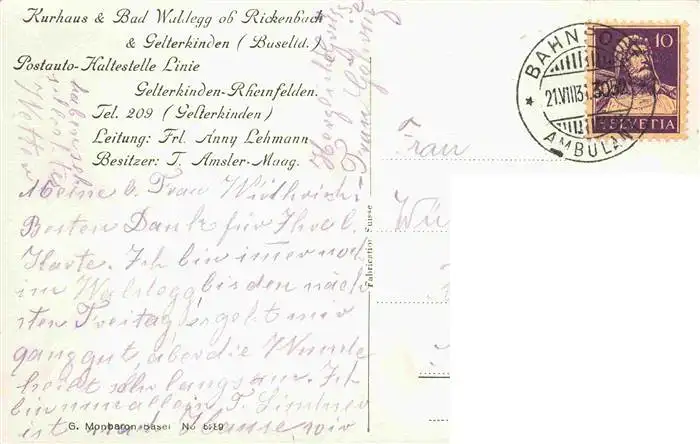 Kurhaus & Bad Waldegg ob Rickenbach
& Gelterkinden (Baselld.)
Postauto-Haltestelle Linie
Gelterkinden-Rheinfelden.
Tel. 209 (Gelterkinden)
Leitung: Frl. Anny Lehmann
Besitzer: T. Amsler-Maag.
Meine l. Frau Wüthrich!
Besten Dank für Ihre l.
Karte. Ich bin immer noch
im Waldegg bis den näch
sten Freitag, es geht mir
ganz gut, aber die Wunde
heilt sehr langsam. Ich
bin nun allein, T. Lindner
ist nach Hause, wir
haben
Wetter
Herzliche Grüsse
Frau
G. Monbaron Basel No 519
Fabrication Suisse
Frau
Wü
BAHNPO
21.VIII.31
AMBULA
10
HELVETIA